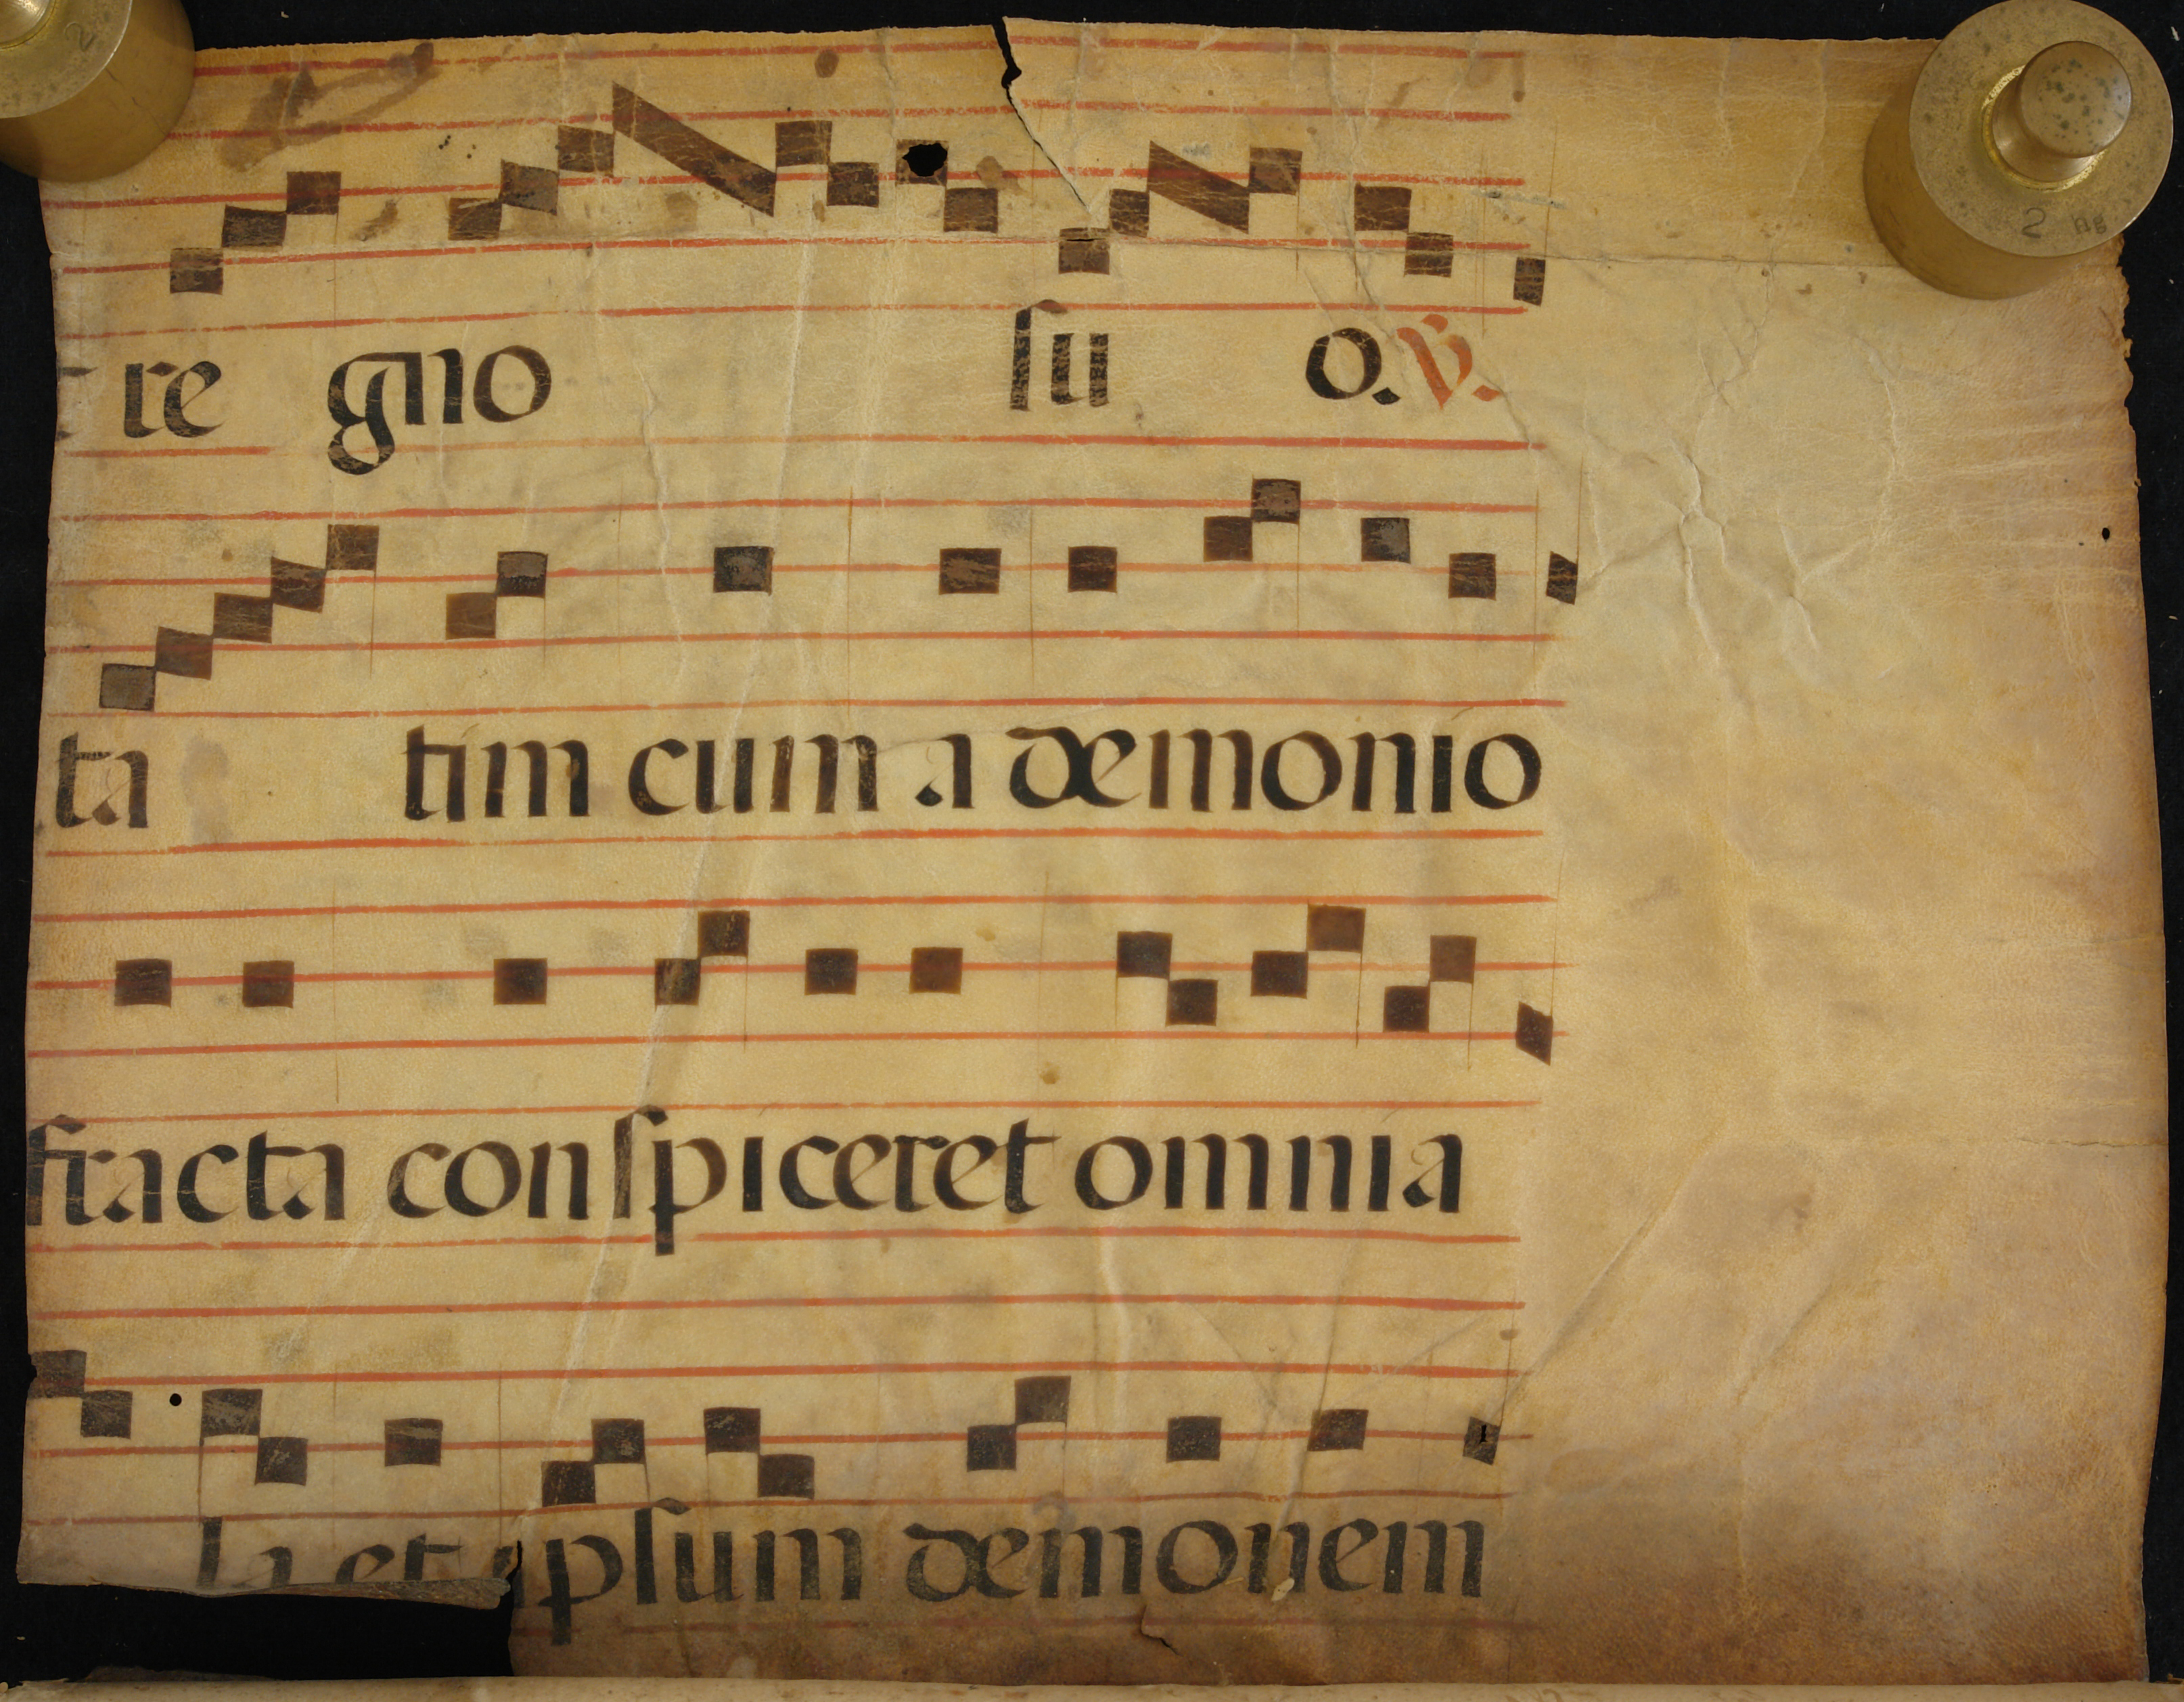 re gno su o. V.
ta tim cum a demonio
fracta conspiceret omnia
la et ipsum demonem